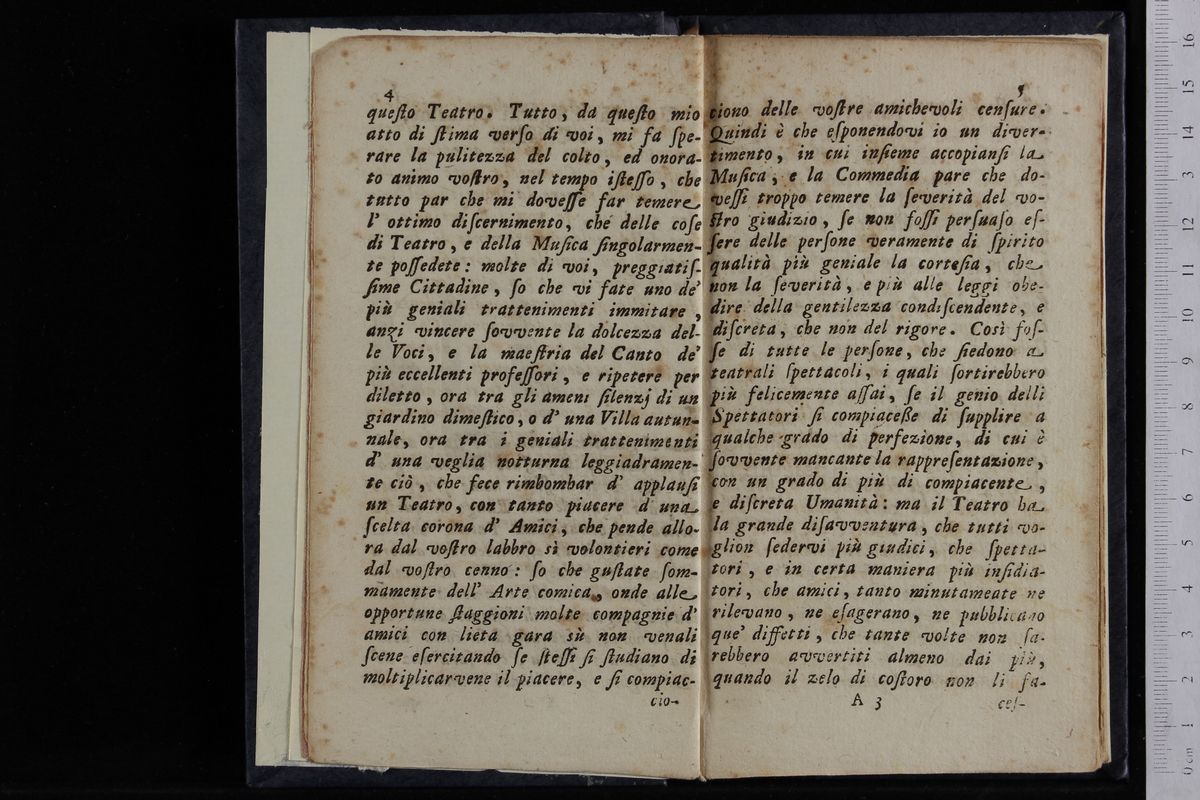 4
queſto Teatro. Tutto, da queſto mio
atto di ſtima verſo di voi, mi fa ſpe-
rare la pulitezza del colto, ed onora-
to animo voſtro, nel tempo iſteſſo, che
tutto par che mi doveſſe far temere
l' ottimo diſcernimento, che delle coſe
di Teatro, e della Muſica ſingolarmen-
te poſſedete: molte di voi, preggiatiſ-
ſime Cittadine, ſo che vi fate uno de'
più geniali trattenimenti immitare,
anzi vincere ſovvente la dolcezza del-
le Voci, e la maeſtria del Canto de'
più eccellenti profeſſori, e ripetere per
diletto, ora tra gli ameni ſilenzj di un
giardino dimeſtico, o d' una Villa autun-
nale, ora tra i geniali trattenimenti
d' una veglia notturna leggiadramen-
te ciò, che fece rimbombar d' applauſi
un Teatro, con tanto piacere d una
ſcelta corona d' Amici, che pende allo-
ra dal voſtro labbro sì volontieri come
dal voſtro cenno: ſo che guſtate ſom-
mamente dell' Arte comica, onde alle
opportune ſtaggioni molte compagnie d'
amici con lieta gara sù non venali
ſcene eſercitando ſe ſteſſi ſi ſtudiano di
moltiplicarvene il piacere, e ſi compiac-
cio-
5
ciono delle voſtre amichevoli cenſure.
Quindi è che eſponendovi io un diver-
timento, in cui inſieme accopianſi la
Muſica, e la Commedia pare che do-
veſſi troppo temere la ſeverità del vo-
ſtro giudizio, ſe non foſſi perſuaſo eſ-
ſere delle perſone veramente di ſpirito
qualità più geniale la corteſia, che
non la ſeverità, e più alle leggi obe-
dire della gentilezza condiſcendente, e
diſcreta, che non del rigore. Così foſ-
ſe di tutte le perſone, che ſiedono a
teatrali ſpettacoli, i quali ſortirebbero
più felicemente aſſai, ſe il genio delli
Spettatori ſi compiaceße di ſupplire a
qualche grado di perfezione, di cui è
ſovvente mancante la rappreſentazione,
con un grado di più di compiacente,
e diſcreta Umanità: ma il Teatro ha
la grande diſavventura, che tutti vo-
glion ſedervi più giudici, che ſpetta-
tori, e in certa maniera più inſidia-
tori, che amici, tanto minutamente ne
rilevano, ne eſagerano, ne pubblicano
que' diffetti, che tante volte non ſa-
rebbero avvertiti almeno dai più,
quando il zelo di coſtoro non li fa-
A 3
ceſ-